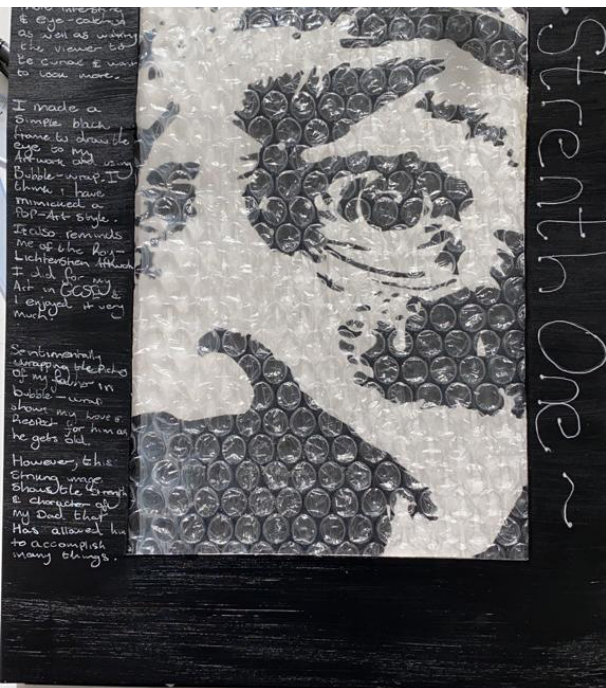 more interesting
& eye-catching
as well as wanting
the viewer to
be curious & want
to look more.
I made a
Simple black
frame to draw the
eye to my
Artwork and using
Bubble-wrap. I
think i have
mimicked a
POP-Art style.
It also reminds
me of the Roy-
Lichtenstien Artwork
I did for my
Art in GCSE &
I enjoyed it very
much.
Sentimentally
wrapping the
of my father in
bubble-wrap
shows my love &
Respect for him as
he gets old.
However, this
strong image
shows the strength
& character of
my Dad that
Has allowed him
to accomplish
many things.
~ Strenth One ~